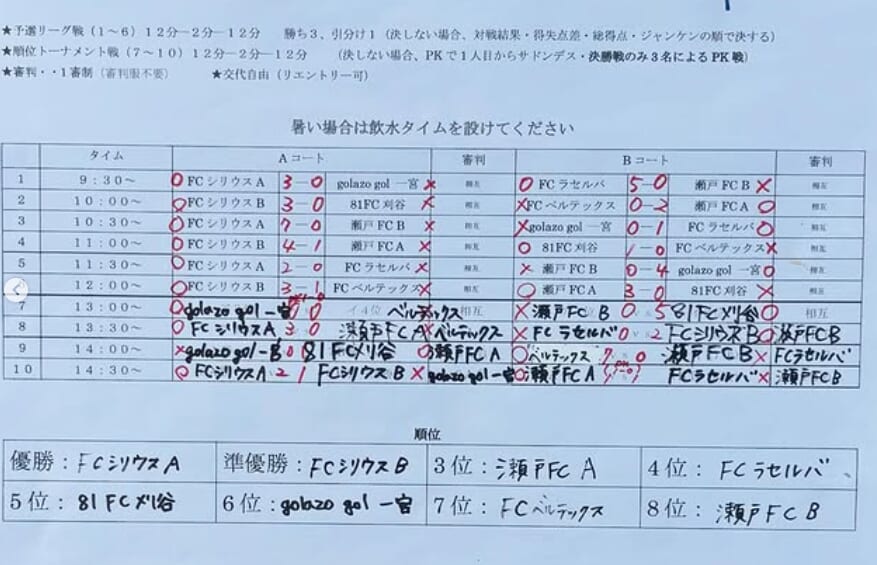 ★予選リーグ戦（1～6）12分―2分―12分　勝ち3、引分け1（決しない場合、対戦結果・得失点差・総得点・ジャンケンの順で決する）
★順位トーナメント戦（7～10）12分―2分―12分　（決しない場合、PKで1人目からサドンデス・決勝戦のみ3名によるPK戦）
★審判・・1審制（審判服不要）　★交代自由（リエントリー可）
暑い場合は飲水タイムを設けてください
タイム　Aコート　審判　Bコート　審判
1　9：30～　○ FCシリウスA　3-0　golazo gol 一宮 ×　相互　○ FCラセルバ　5-0　瀬戸FC B ×　相互
2　10：00～　○ FCシリウスB　3-0　81FC刈谷 ×　相互　× FCベルテックス　0-2　瀬戸FC A ○　相互
3　10：30～　○ FCシリウスA　7-0　瀬戸FC B ×　相互　× golazo gol 一宮　0-1　FCラセルバ ○　相互
4　11：00～　○ FCシリウスB　4-1　瀬戸FC A ×　相互　○ 81FC刈谷　1-0　FCベルテックス ×　相互
5　11：30～　○ FCシリウスA　2-0　FCラセルバ ×　相互　× 瀬戸FC B　0-4　golazo gol 一宮 ○　相互
12：00～　○ FCシリウスB　3-1　FCベルテックス ×　相互　○ 瀬戸FC A　3-0　81FC刈谷 ×　相互
7　13：00～　○ golazo gol 一宮　0 0　イ4位　ベルテックス ×　相互　× 瀬戸FC B　0 5　81FC刈谷 ○　相互
8　13：30～　○ FCシリウスA　3 0　瀬戸FC A ×　ベルテックス　× FCラセルバ　0 2　FCシリウスB ○　瀬戸FCB
9　14：00～　× golazo gol 一宮　0 1　81FC刈谷 ○　瀬戸FC A　○ ベルテックス　7 0　瀬戸FC B ×　FCラセルバ
10　14：30～　○ FCシリウスA　2 1　FCシリウスB ×　golazo gol 一宮　○ 瀬戸FC A　FCラセルバ ×　瀬戸FCB
順位
優勝：FCシリウスA　準優勝：FCシリウスB　3位：瀬戸FC A　4位：FCラセルバ
5位：81FC刈谷　6位：golazo gol 一宮　7位：FCベルテックス　8位：瀬戸FC B